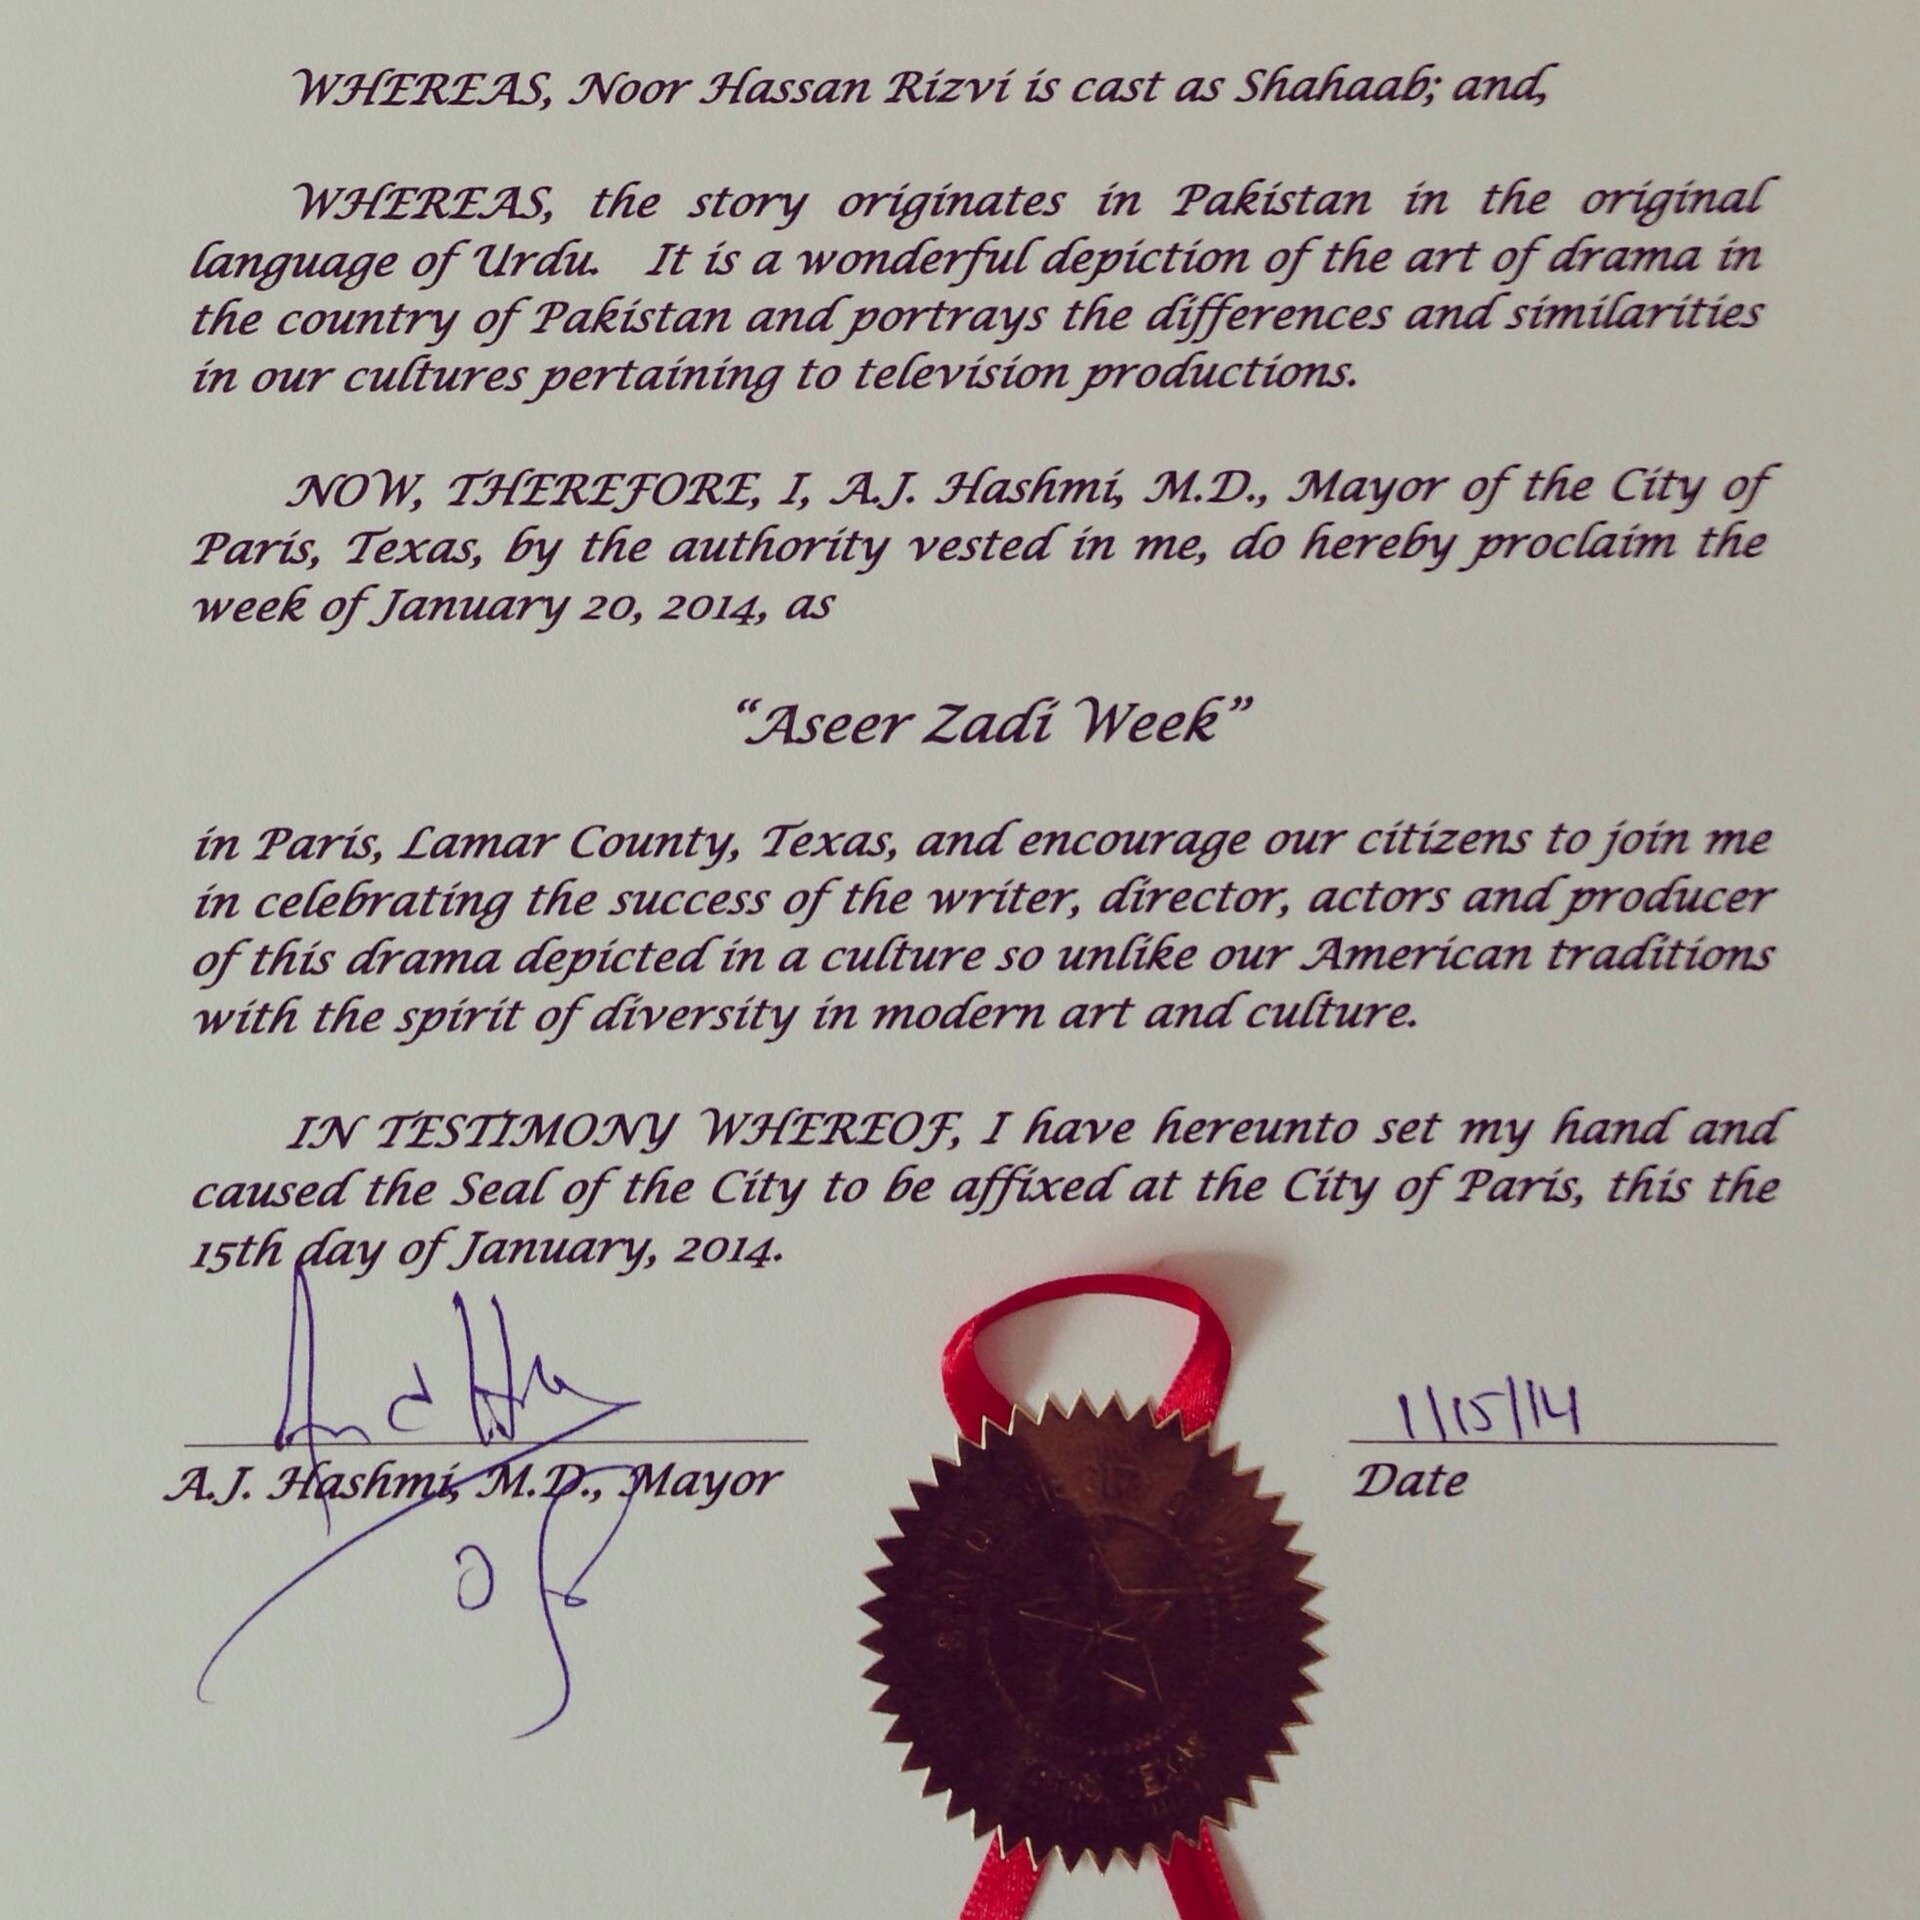 WHEREAS, Noor Hassan Rizvi is cast as Shahaab; and,
WHEREAS, the story originates in Pakistan in the original
language of Urdu. It is a wonderful depiction of the art of drama in
the country of Pakistan and portrays the differences and similarities
in our cultures pertaining to television productions.
NOW, THEREFORE, I, A.J. Hashmi, M.D., Mayor of the City of
Paris, Texas, by the authority vested in me, do hereby proclaim the
week of January 20, 2014, as
“Aseer Zadi Week”
in Paris, Lamar County, Texas, and encourage our citizens to join me
in celebrating the success of the writer, director, actors and producer
of this drama depicted in a culture so unlike our American traditions
with the spirit of diversity in modern art and culture.
IN TESTIMONY WHEREOF, I have hereunto set my hand and
caused the Seal of the City to be affixed at the City of Paris, this the
15th day of January, 2014.
1/15/14
A.J. Hashmi, M.D., Mayor
Date